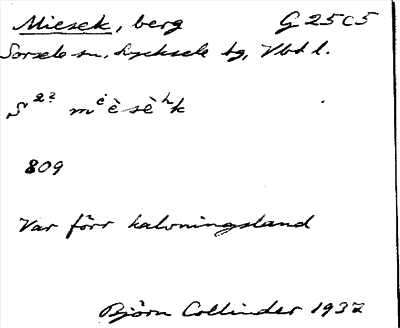 Miesek, berg G 25 C 5
Sorsele sn, Lycksele tg, Vbd l.
S 2? mėèsèʰk
809
Var förr kalvningsland
Björn Collinder 1937